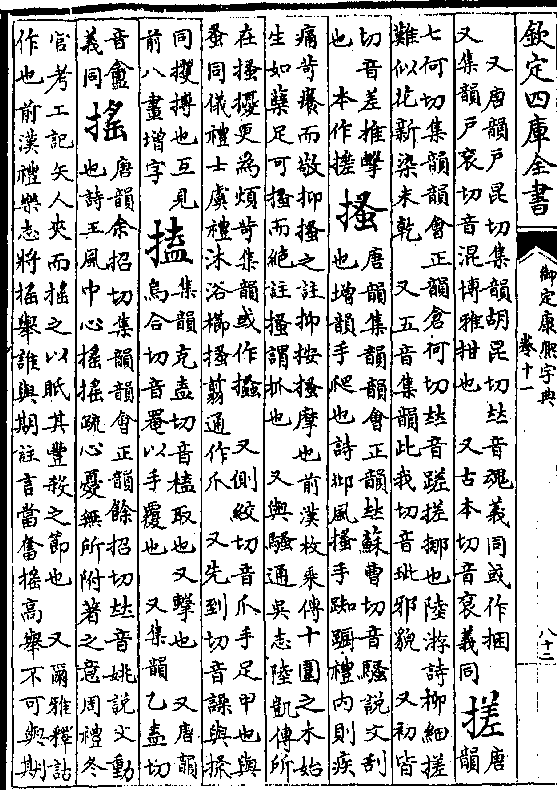 欽定四庫全書
御定康熙字典
卷十一
八十二
又唐韻戶昆切集韻胡昆切𠀤音魂義同或作捆
又集韻戶衮切音混博雅拑也 又古本切音衮義同
搓
唐
韻
七何切集韻韻會正韻倉何切𠀤音蹉搓挪也陸游詩柳細搓
難似花新染未乾 又五音集韻此我切音玼邪貌 又初皆
切音差推擊
也 本作
搔
唐韻集韻韻會正韻𠀤蘇曹切音騷說文刮
也增韻手爬也詩邶風搔手踟躕禮內則疾
痛苛癢而敬抑搔之註抑按搔摩也前漢枚乗傳十圍之木始
生如蘖足可搔而絶註搔謂抓也 又與騷通吳志陸凱傳所
在搔擾更為煩苛集韻或作 又側絞切音爪手足甲也與
蚤同儀禮士虞禮沐浴櫛搔翦通作爪 又先到切音譟與操
同搜搏也互見
前八畫增字
搕
集韻克盍切音榼取也又擊也 又唐韻
烏合切音罨以手覆也 又集韻乙盍切
音盦
義同
搖
唐韻余招切集韻韻會正韻餘招切𠀤音姚說文動
也詩王風中心搖搖疏心憂無所附著之意周禮冬
官考工記矢人夾而搖之以眡其豐殺之節也 又爾雅釋詁
作也前漢禮樂志將搖舉誰與期註言當奮搖高舉不可與期